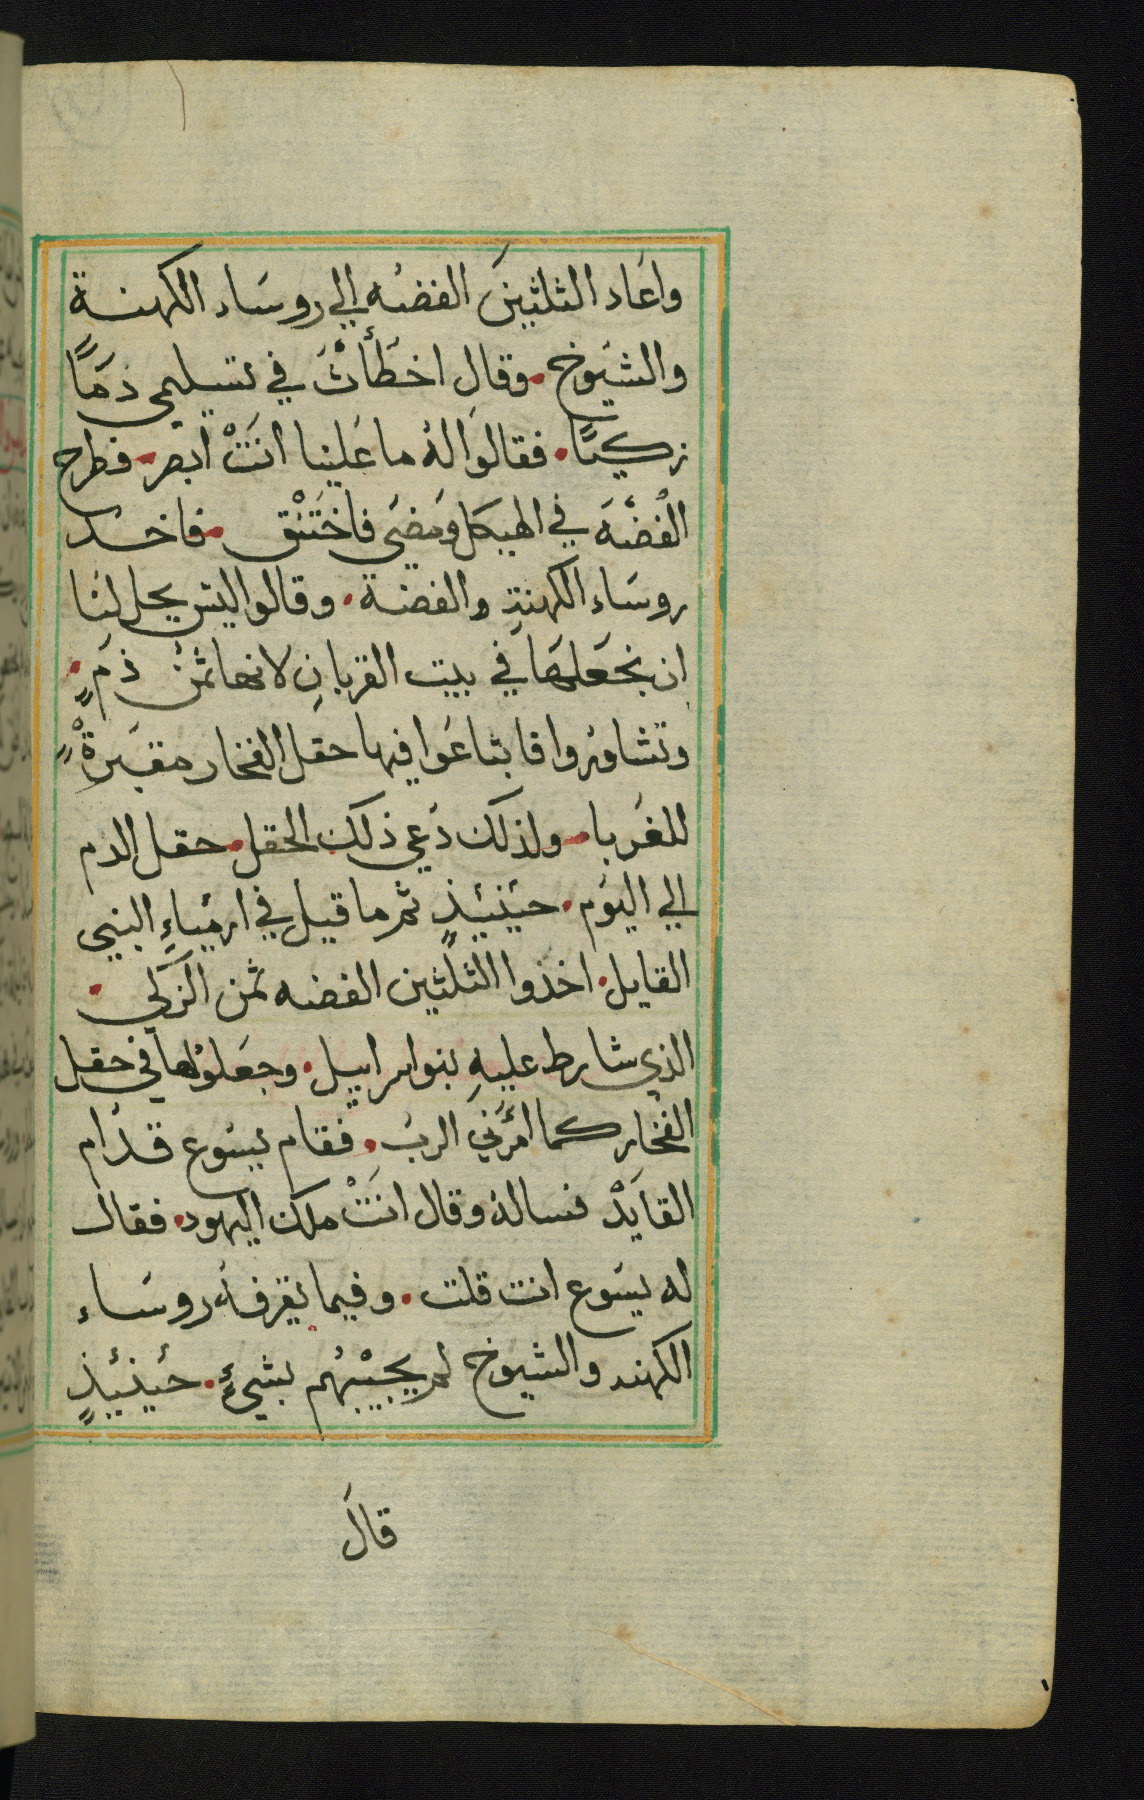 واعَاد الثلثينَ الفضه الي روسَاء الكهنة
والشيوخ. وقال اخطَأتْ في تسليمي دمًا
زكيًا. فقالوا له ما علينا انتْ ابصر. فطرح
الفضَّه في الهيكل ومضي فاختنْق. فاخد
روسَاء الكهنةِ والفضة. وقالوا ليس يحل لنا
ان نجعلهَا في بيت القربانِ لانها ثمن دَمٍ.
وتشاوروا فابتاعَوا فيها حقل الفخار مقبرةً
للغربا. ولذلك دعي ذلك الحقل. حقل الدم
الي اليوم. حينيئذٍ تم ما قيل في ارمياءِ النبي
القايل. اخذوا الثلثين الفضه ثمن الزكي.
الذي شارط عليهِ بنو اسراييل. وجعلوُها في حقل
الفخار كما امرَني الرب. فقام يسوع قدام
القايَد فساله وقال انتْ ملك اليهود. فقال
له يسَوع انت قلت. وفيما يقرفهُ روسَاء
الكهنه والشيوخ لم يجيبْهُم بشيءٍ. حئينيئذٍ
قالَ